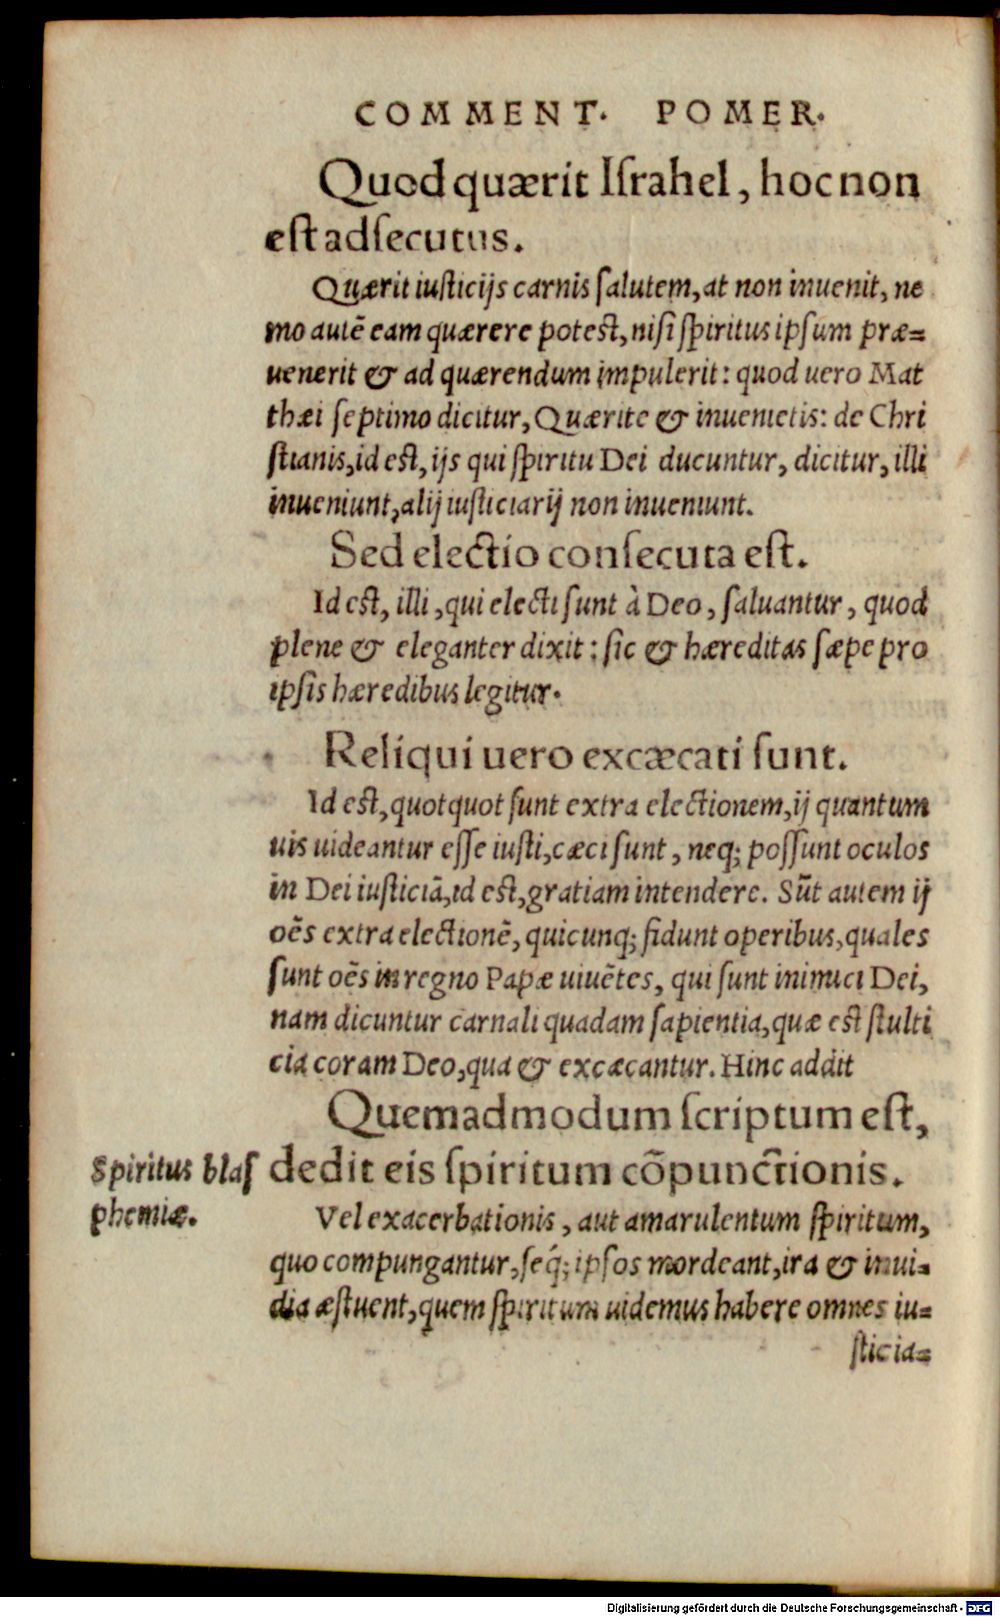 COMMENT. POMER.
Quod quærit Iſrahel, hoc non
eſt adſecutus.
Quærit iuſticijs carnis ſalutem, at non inuenit, ne
mo autē eam quærere poteſt, niſi ſpiritus ipſum præ=
uenerit & ad quærendum impulerit: quod uero Mat
thæi ſeptimo dicitur, Quærite & inuenietis: de Chri
ſtianis, id eſt, ijs qui ſpiritu Dei ducuntur, dicitur, illi
inueniunt, alij iuſticiarij non inueniunt.
Sed electio conſecuta eſt.
Id eſt, illi, qui electi ſunt à Deo, ſaluantur, quod
plene & eleganter dixit: ſic & hæreditas ſæpe pro
ipſis hæredibus legitur.
Reliqui uero excæcati ſunt.
Id eſt, quotquot ſunt extra electionem, ij quantum
uis uideantur eſſe iuſti, cæci ſunt, neq; poſſunt oculos
in Dei iuſticiā, id eſt, gratiam intendere. Sūt autem ij
oēs extra electionē, quicunq; fidunt operibus, quales
ſunt oēs in regno Papæ uiuētes, qui ſunt inimici Dei,
nam dicuntur carnali quadam ſapientia, quæ eſt ſtulti
cia coram Deo, qua & excæcantur. Hinc addit
Quemadmodum ſcriptum eſt,
dedit eis ſpiritum cōpunctionis.
Spiritus blaſ
phemiæ.
Vel exacerbationis, aut amarulentum ſpiritum,
quo compungantur, ſeq́; ipſos mordeant, ira & inui=
dia æſtuent, quem ſpiritum uidemus habere omnes iu=
ſticia=
Digitalisierung gefördert durch die Deutsche Forschungsgemeinschaft - DFG